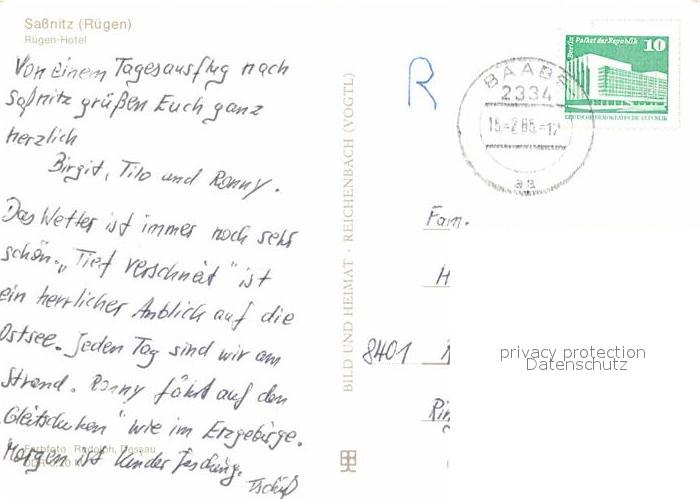 Saßnitz (Rügen)
Rügen-Hotel
Von einem Tagesausflug nach
Saßnitz grüßen Euch ganz
herzlich
Birgit, Tilo und Ronny.
Das Wetter ist immer noch sehr
schön. „Tief verschneit" ist
ein herrlicher Anblick auf die
Ostsee. Jeden Tag sind wir am
Strand. Ronny fährt auf den
Gleitschuhen" wie im Erzgebirge.
Morgen ist Kinderfasching.
Tschüß
Farbfoto: Rudolph, Dessau
BILD UND HEIMAT · REICHENBACH (VOGTL)
R
BAABE
2334
15.-2.85.-17
aa
Berlin Palast der Republik
10
DEUTSCHE DEMOKRATISCHE REPUBLIK
Fam.
H
8401
Rin
privacy protection
Datenschutz